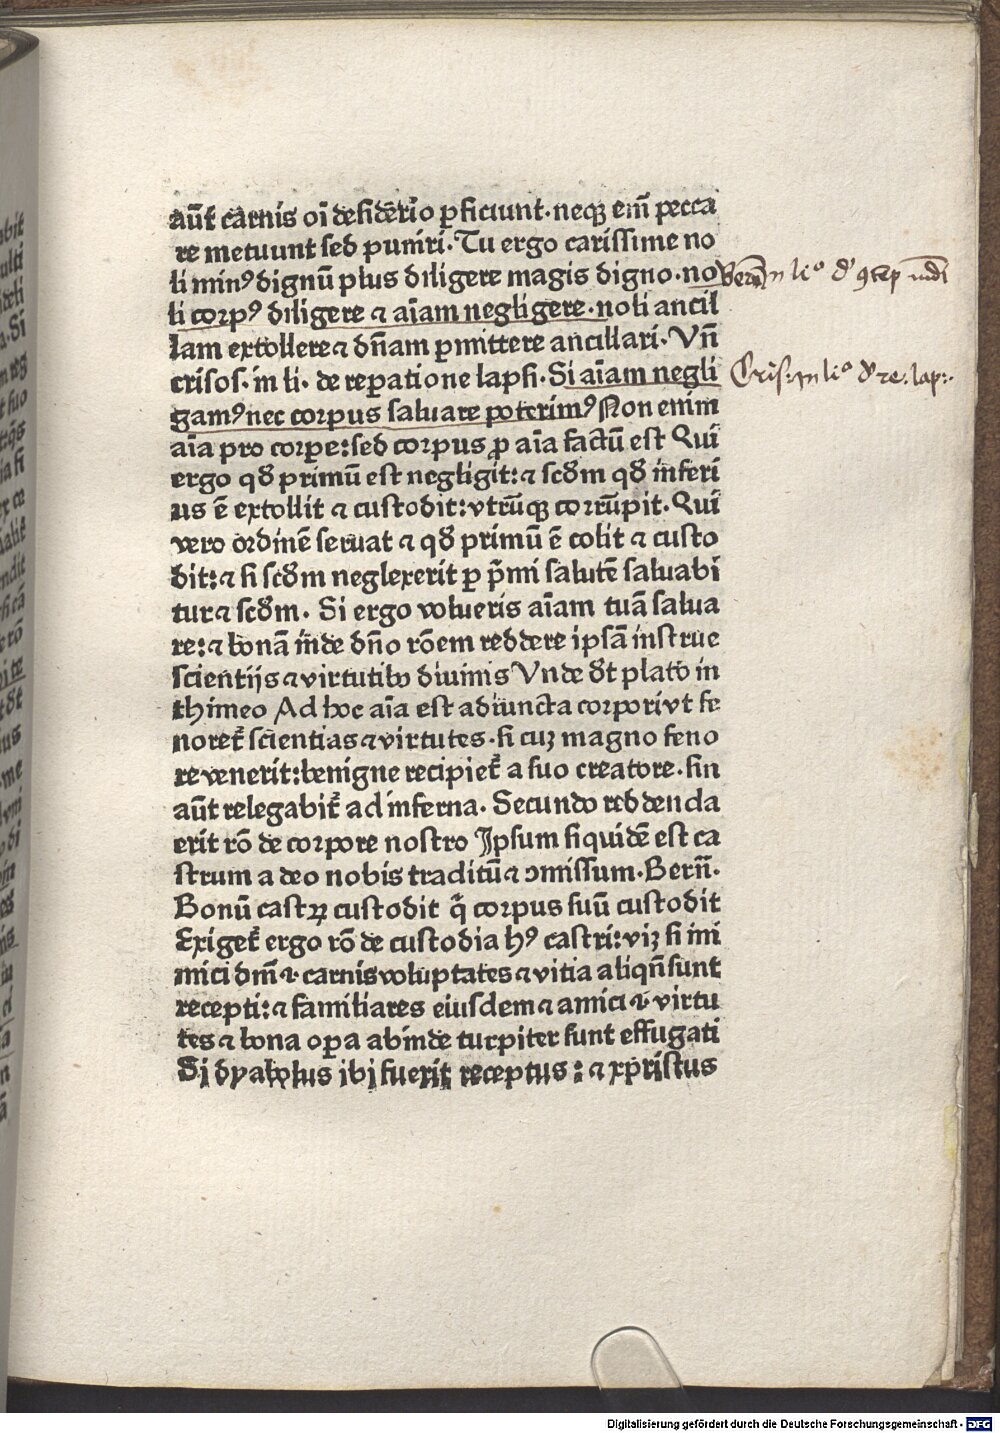 aūt carnis oī desiderio ꝑficiunt·neqꝫ em̄ pecca
re metuunt sed puniri·Tu ergo carissime no
li minꝰ dignū plus diligere magis digno·no
li corpꝰ diligere ⁊ aīam negligere·noli ancil
lam extollere ⁊ dn̄am ꝑmittere ancillari·Vn̄
crisos·in li· de reꝑatione lapsi·Si aīam negli
gamꝰ nec corpus saluare poterimꝰ Non enim
aīa pro corpe:sed corpus ꝓ aīa factū est Qui
ergo qđ primū est negligit:⁊ scđm qđ inferi
us ē extollit ⁊ custodit:vtrūqꝫ corrūpit·Qui
vero ordinē seruat ⁊ qđ primū ē colit ⁊ custo
dit:⁊ si scđm neglexerit ꝑ p̄mi salutē saluabi
tur ⁊ scđm· Si ergo volueris aīam tuā salua
re:⁊ bonā inde dn̄o rōem reddere ipsā instrue
scientijs ⁊ virtutibꝰ diuinis Vnde dt plato in
thimeo Ad hoc aīa est adiuncta corpori vt fe
noret̄ scientias ⁊ virtutes·si cuꝫ magno feno
re venerit:benigne recipiet̄ a suo creatore·sin
aūt relegabit̄ ad inferna· Secundo reddenda
erit rō de corpore nostro Ipsum siquidē est ca
strum a deo nobis traditū ⁊ ↄmissum·Bern̄·
Bonū castꝝ custodit q̄ corpus suū custodit
Exiget̄ ergo rō de custodia hꝰ castri:viꝫ si ini
mici dn̄i ·i· carnis voluptates ⁊ vitia aliqn̄ sunt
recepti:⁊ familiares eiusdem ⁊ amici ·i· virtu
tes ⁊ bona oꝑa abinde turpiter sunt effugati
Si dyabolus ibi fuerit receptus:⁊ xpristus
Bern̄ in liº dˀ ꝯtēp mūdi
Cris: in liº dˀ re: lap:
Digitalisierung gefördert durch die Deutsche Forschungsgemeinschaft - DFG